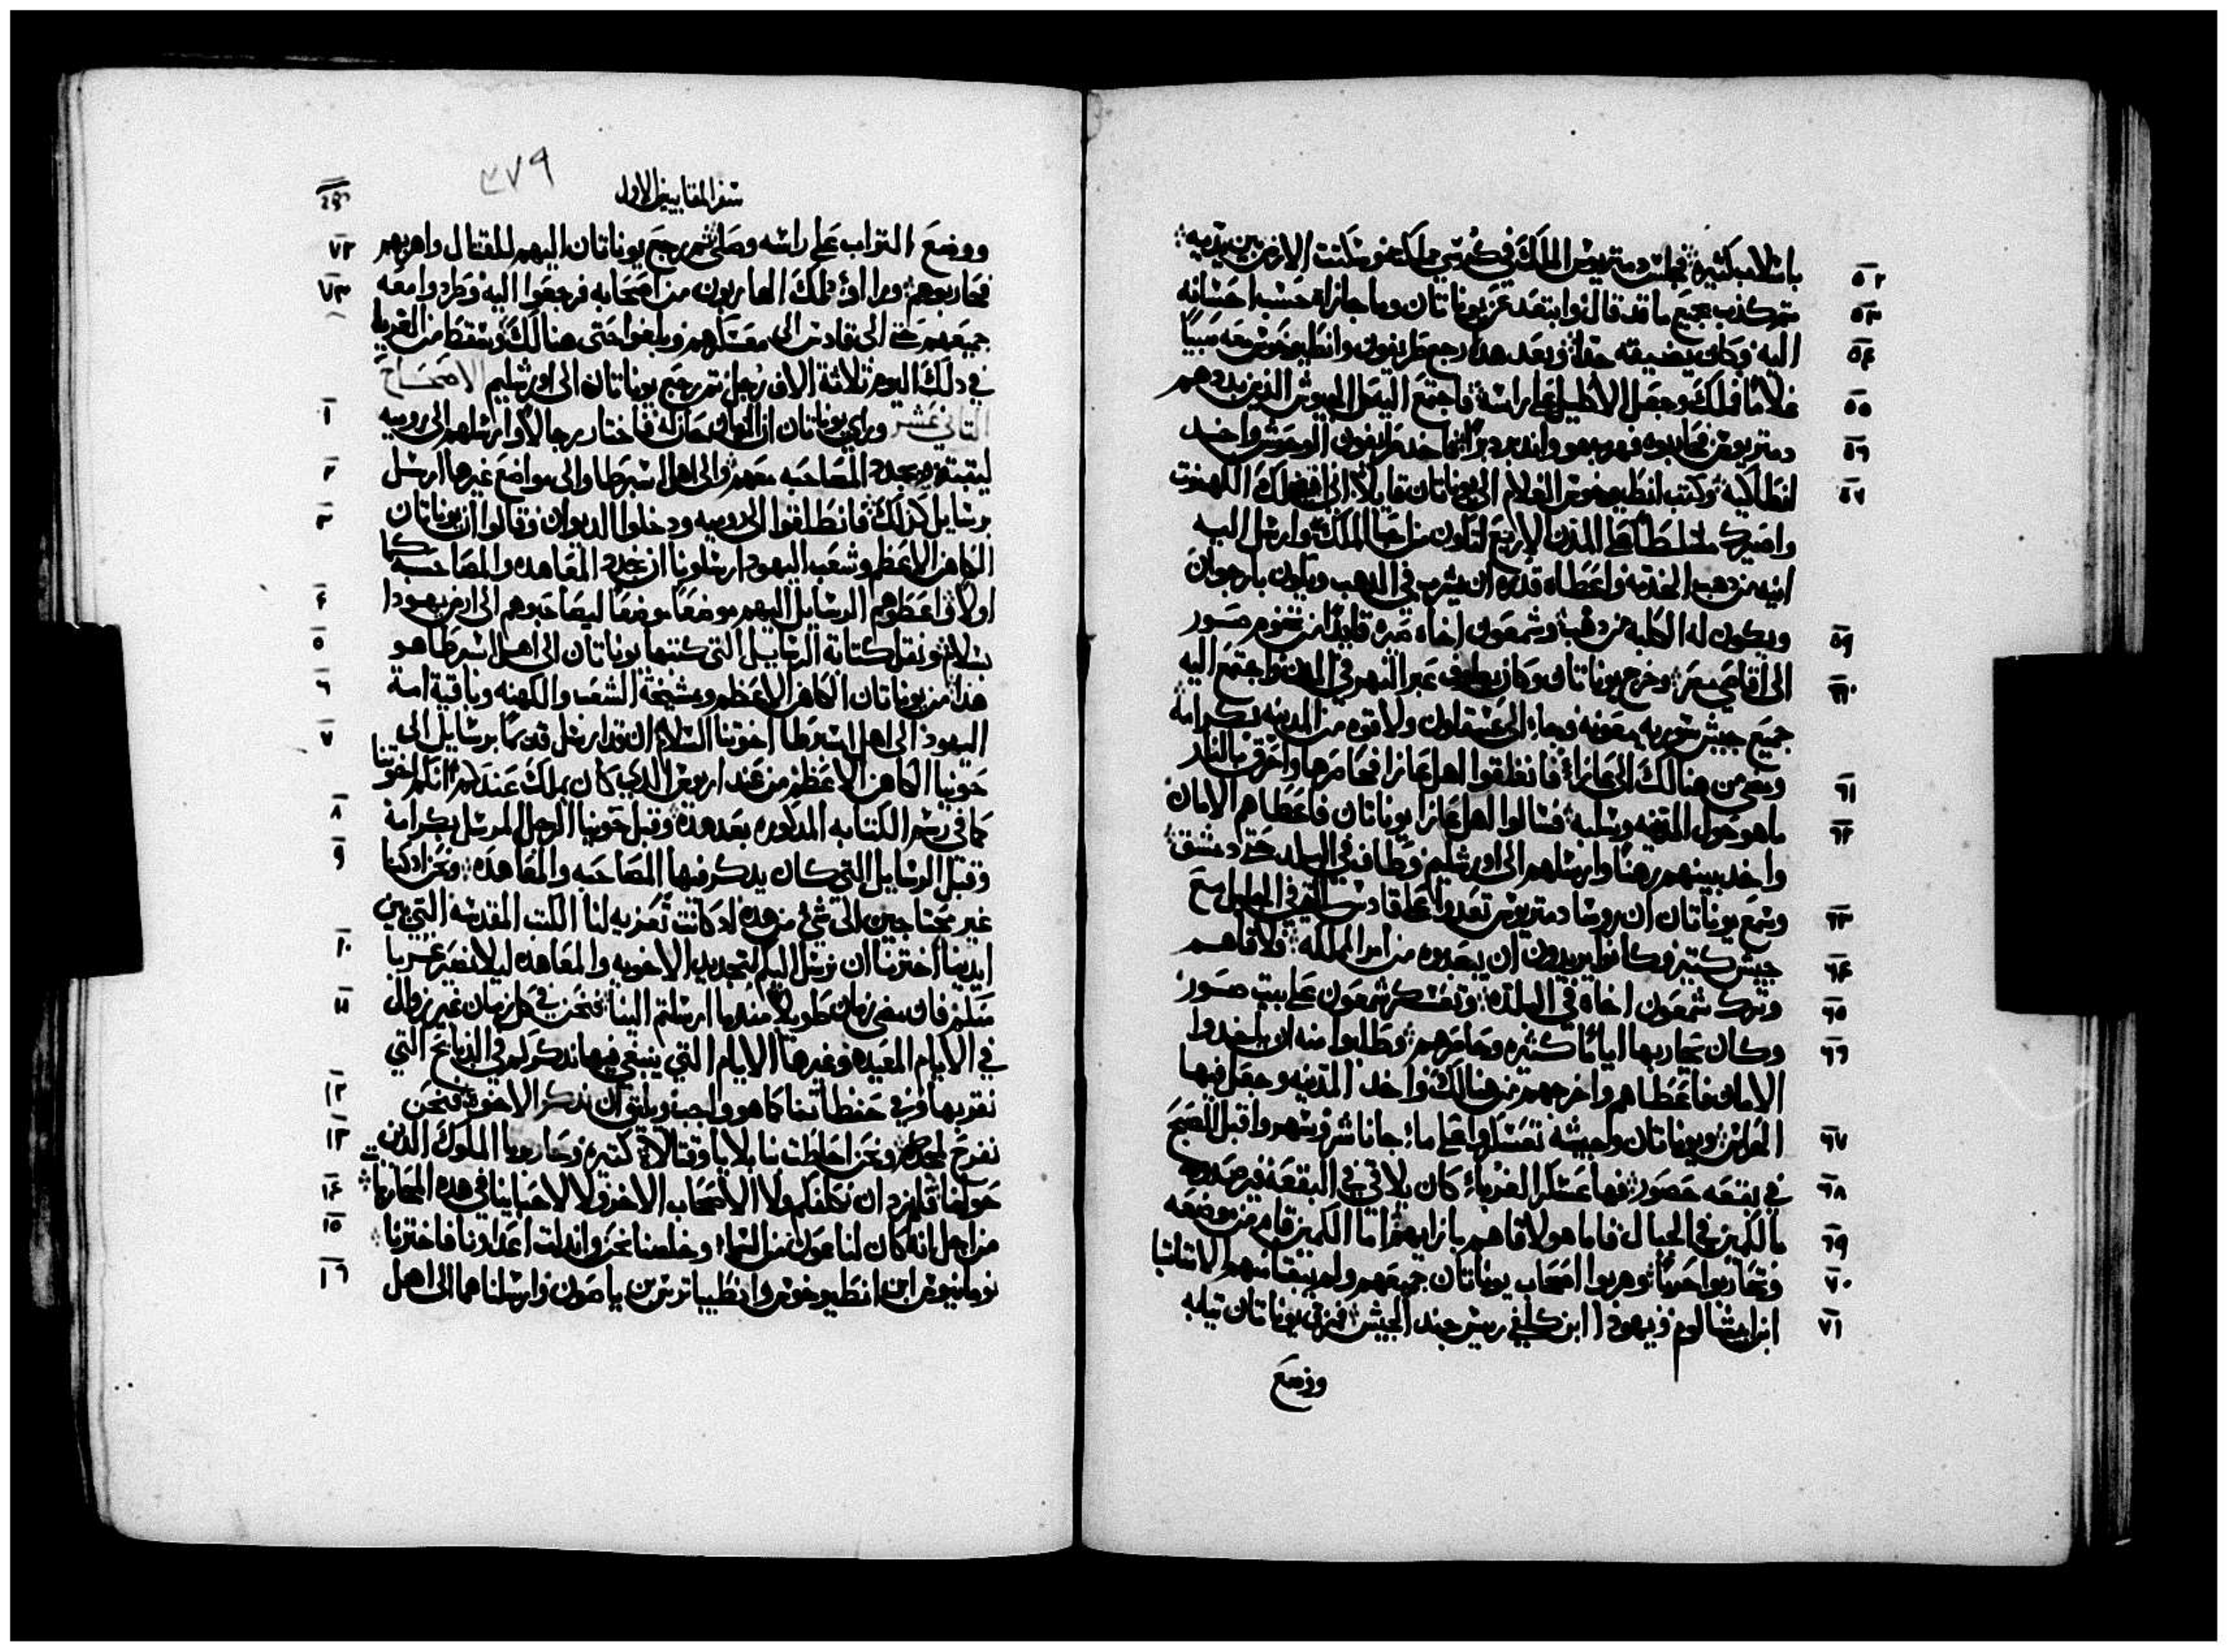 ٥٢ باسلاب كثيره فجلس دمتريوس الملك في كرسي مملكته وسكتت الارض بين يديه
٥٣ ثم كذب بجميع ما قد قال وابتعد عن يوناتان وما جازاه حسب احسانه
٥٤ اليه وكان يضيقه جدا وبعد هذا رجع طريفون وانطيوخوس معه صبيا
٥٥ غلاما فملك وجعل الاكليل على راسه فاجتمع اليه كل الجيوش الذين بددهم
٥٦ دمتريوس فحاربوه فهرب هو واندبر دبرا فاخذ طريفون الوحوش واخد
٥٧ انطاكيه وكتب انطيوخوس الغلام الى يوناتان قايلا اني اقيم لك الكهنوت
واصيرك مسلطا على المدن الاربع لتكون من احبا الملك وارسل اليه
انيه من ذهب لخدمته واعطاه قدره ان يشرب في الدهب ويكون بارجوان
٥٩ ويكون له الكلبه من دهب وشمعون اخاه صيره قايدا من تخوم صور
٦٠ الى اقاصي مصر وخرج يوناتان وكان يطوف عبر النهر في المدن واجتمع اليه
جميع جيش سوريه بمعونه وجاء الى عسقلون ولاقوه من المدينه بكرامه
٦١ ومضى من هنالك الى غازا فانغلقوا اهل غازا فحاصرها واحرق بالنار
٦٢ ما هو حول المدينه وسلبه فسالوا اهل غازا يوناتان فاعطاهم الامان
واخد بنيهم رهنا وارسلهم الى اورشليم وطاف في البلد حتى دمشق
٦٣ وسمع يوناتان ان روسا دمتريوس تعدوا على قادس التي في الجليل مع
٦٤ جيش كتير وكانوا يريدون ان يبعدوه من امر المملكه ولاقاهم
٦٥ وترك شمعون اخاه في البلده وتعسكر شمعون على بيت صور
٦٦ وكان يحاربها اياما كثيره وحاصرهم وطلبوا منه ان ياخدوا
الامان فاعطاهم واخرجهم من هنالك واخد المدينه وجعل فيها
٦٧ الحراس ويوناتان وجيشه تعسكروا على ماء جاناشر وسهروا قبل الصبح
٦٨ في بقعه حصور فها عسكر الغرباء كان يلاقي في البقعه فرصدوه
٦٩ بالكمين في الجبال فاما هو لاقاهم بازايهم اما الكمين قام من موضعه
٧٠ وتحاربوا حربا وهربوا اصحاب يوناتان جميعهم ولم يبق منهم الا متاتيا
٧١ ابن ابيشالوم ويهودا ابن كلفي ريس جند الجيش فمزق يوناتان تيابه
ووضع
سفر المقابيين الاول
٣٧٩
٧٢ ووضع التراب على راسه وصلى ثم رجع يوناتان اليهم للقتال واهربهم
٧٣ فحاربوهم وراوا ذلك الهاربون من اصحابه فرجعوا اليه وطردوا معه
جميعهم حتى الى قادس الى معسكرهم وبلغوا حتى هنالك وسقط من الغربا
في دلك اليوم تلاتة الاف رجل ثم رجع يوناتان الى اورشليم الاصحاح
١ التاني عشر وراي يوناتان ان الزمان حان له فاختار رجالا وارسلهم الى روميه
٢ ليتبتوا ويجددوا المصاحبه معهم والى اهل اسبرطا والى مواضع غيرها ارسل
٣ برسايل كذلك فانطلقوا الى روميه ودخلوا الديوان وقالوا ان يوناتان
الكاهن الاعظم وشعب اليهود ارسلونا ان نجدد المعاهده والمصاحبه كما
٤ اولا واعطوهم الرسايل اليهم موضعا موضعا ليصاحبوهم الى ارض يهودا
٥ بسلام ونقل كتابة الرسايل التي كتبها يوناتان الى اهل اسبرطا هو
٦ هذا من يوناتان الكاهن الاعظم ومشيخة الشعب والكهنه وباقية امة
٧ اليهود الى اهل اسبرطا اخوتنا السلام ان قد ارسل قديما برسايل الى
حونيا الكاهن الاعظم من عند اريوس الدي كان يملك عندكم انكم اخوتنا
٨ كما في رسم الكتابه المدكوره بعد هذه وقبل حونيا الرجل المرسل بكرامة
٩ وقبل الرسايل التي كان يدكر فيها المصاحبه والمعاهده ونحن اد كنا
غير محتاجين الى شي من هده اد كانت تعزيه لنا الكتب المقدسه التي بين
١٠ ايدينا اخترنا ان نرسل اليكم لتجديد الاخويه والمعاهده ليلا نصير غربا
١١ منكم فان مضى زمان طويلا مندما ارسلتم الينا فنحن في كل زمان غير زوال
في الايام المعيده وغيرها الايام التي ينبغي فيها ندكركم في الذبايح التي
١٢ نقربها وفي حفظاتنا كما هو واجب ويليق ان ندكر الاخوه فنحن
١٣ نفرح لمجدكم ونحن احاطت بنا بلايا وقتالات كثيره وحاربونا الملوك الدين
١٤ حولنا فلم نرد ان نكلفكم ولا الاصحاب الاخر ولا لاحبابنا في هده المحاربات
١٥ من اجل انه كان لنا عون من السماء وخلصنا نحن واندلت اعداونا فاخترنا
١٦ نومانيوس ابن انطيوخوس وانطيباترس بن ياصون وارسلناهما الى اهل